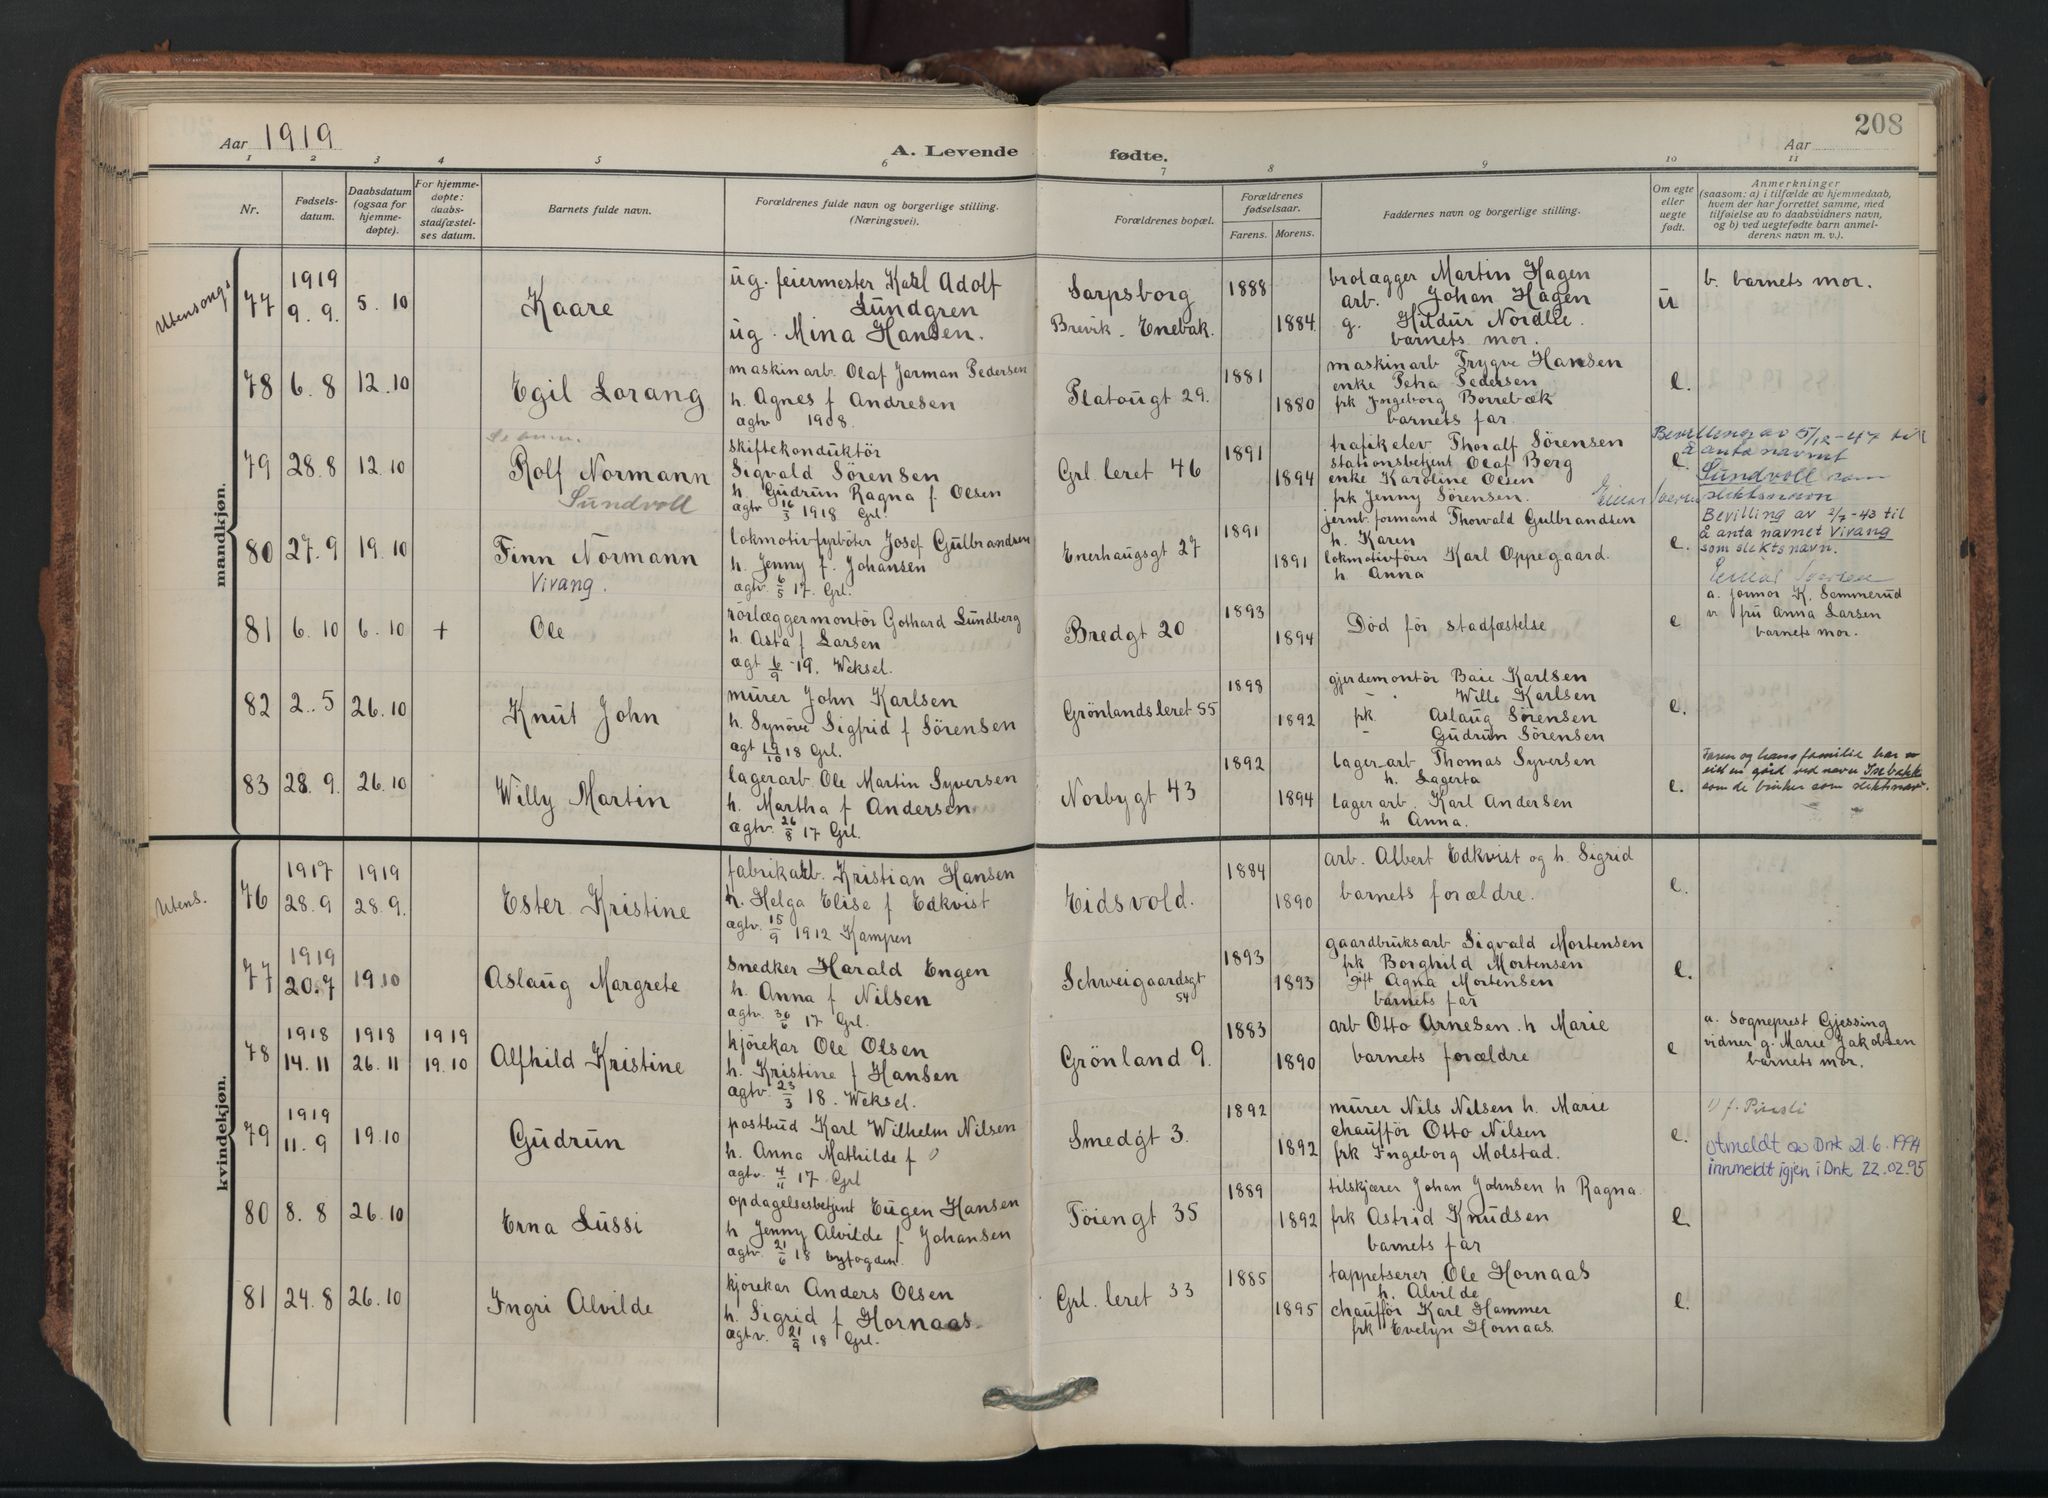 Aar 1919
A. Levende fødte.
208
Aar
1 2 3 4 5 6 7 8 9 10 11
Nr.
Fødsels-
datum.
Daabsdatum
(ogsaa for
hjemme-
døpte).
For hjemme-
døpte:
daabs-
stadfæstel-
ses datum.
Barnets fulde navn.
Forældrenes fulde navn og borgerlige stilling.
(Næringsvei).
Forældrenes bopæl.
Forældrenes
fødselsaar.
Farens. Morens.
Faddernes navn og borgerlige stilling.
Om egte
eller
uegte
født.
Anmerkninger
(saasom: a) i tilfælde av hjemmedaab,
hvem der har forrettet samme, med
tilføielse av to daabsvidners navn,
og b) ved uegtefødte barn anmel-
derens navn m. v.).
mandkjøn.
Utensogns
77
1919
9. 9.
5. 10
Kaare
ug. feiermester Karl Adolf
Lundgren
ug. Mina Hansen.
Sarpsborg
Brevik. Enebak.
1888
1884
brolægger Martin Hagen
arb. Johan Hagen
g. Hildur Nordlie.
barnets mor.
u
b. barnets mor.
78
6. 8
12. 10
Egil Lorang
maskinarb. Olaf Jarman Pedersen
h. Agnes f Andresen
agtv 1908.
Platougt 29.
1881
1880
maskinarb Trygve Hansen
enke Petra Pedersen
frk Ingeborg Borrebæk
barnets far
e.
79
28. 8
12. 10
Rolf Normann
Sundvoll
skiftekonduktör
Sigvald Sörensen
h. Gudrun Ragna f Olsen
agtv 16/3 1918 Grl.
Grl. leret 46
1891
1894
trafikelev Thoralf Sörensen
stationsbetjent Olaf Berg
enke Karoline Olsen
frk Jenny Sörensen.
e.
Bevilling av 5/12-47 til
å anta navnet
Sundvoll som
slektsnavn
80
27. 9
19. 10
Finn Normann
Vivang.
lokomotivfyrböter Josef Gulbrandsen
h. Jenny f. Johansen
agtv. 6/5 17. Grl.
Enerhaugsgt 27
1891
1891
jernb. formand Thorvald Gulbrandsen
h. Karen
lokmotivförer Karl Oppegaard.
h Anna
e.
Bevilling av 2/7-43 til
å anta navnet Vivang
som slektsnavn.
81
6. 10
6. 10
+
Ole
rörlæggermontör Gothard Lundberg
h. Asta f Larsen
agt 6/9 -19. Weksel.
Bredgt 20
1893
1894
Död för stadfæstelse
e
a. formor K. Semmerud
v. fru Anna Larsen
barnets mor.
82
2. 5
26. 10
Knut John
murer John Karlsen
h. Synöve Sigfrid f Sörensen
agt 19/10 18 Grl.
Grönlandsleret 55
1898
1892
gjerdemontör Baie Karlsen
- Wille Karlsen
frk Aslaug Sörensen
- Gudrun Sörensen
e.
83
28. 9.
26. 10
Willy Martin
lagerarb Ole Martin Syversen
h. Martha f Andersen
agtv. 26/8 17 Grl.
Norbygt 43
1892
1894
lager-arb Thomas Syversen
h. Lagerta
lagerarb. Karl Andersen
h Anna.
e.
Faren og hans familie har
eid en gård ved navn Isebakke
som de bruker som slektsnavn.
kvindekjøn.
Utens.
76
1917
28. 9
1919
28. 9.
Ester Kristine
fabrikarb. Kristian Hansen
h. Helga Elise f Edkvist
agtv. 15/9 1912 Kampen
Eidsvold.
1884
1890
arb. Albert Edkvist og h. Sigrid
barnets forældre.
e.
77
1919
20. 7
19. 10
Aslaug Margrete
snedker Harald Engen
h. Anna f Nilsen
agtv. 30/6 17 Grl.
Schweigaardsgt
54
1893
1893
gaardbruksarb Sigvald Mortensen
frk Borghild Mortensen
gift Agna Mortensen
barnets far
e.
78
1918
14. 11
1918
26. 11
1919
19. 10
Alfhild Kristine
kjörekar Ole Olsen
h. Kristine f Hansen
agtv. 23/3 18. Weksel.
Grönland 9.
1883
1890
arb Otto Arnesen. h Marie
barnets forældre
e
a. Sogneprest Gjessing
vidner g. Marie Jakobsen
barnets mor.
79
1919
11. 9
19. 10
Gudrun
postbud Karl Wilhelm Nilsen
h. Anna Mathilde f
agtv. 4/11 17. Grl
Smedgt 3.
1892
1892
murer Nils Nilsen h. Marie
chaufför Otto Nilsen
frk Ingeborg Molstad.
e.
Utmeldt av Dnk 21.6.1994
innmeldt igjen i Dnk 22.02.95
80
8. 8
26. 10
Erna Lussi
opdagelsesbetjent Eugen Hansen
h Jenny Alvilde f Johansen
agtv. 21/6 18 byfogden.
Töiengt 35
1889
1892
tilskjærer Johan Johnsen h Ragna.
frk Astrid Knudsen
barnets far
e.
81
24. 8
26. 10
Ingri Alvilde
kjörekar Anders Olsen
h. Sigrid f Hornaas.
agtv. 21/9 18 Grl.
Grl. leret 33
1885
1895
tappetserer Ole Hornaas
h. Alvilde
chaufför Karl Hammer
frk Evelyn Hornaas.
e.